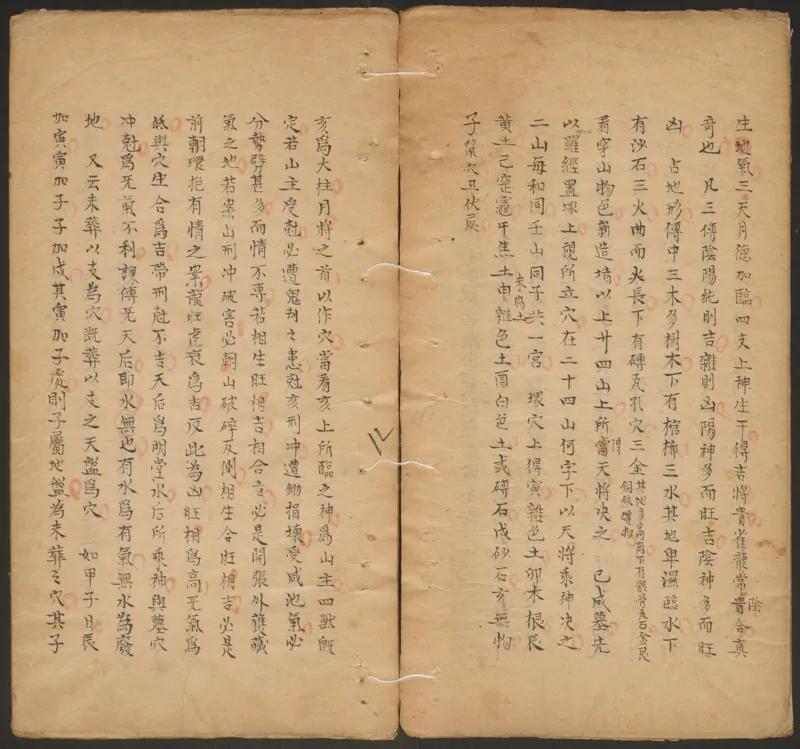 生地氣三天月德加臨四支上神生干得吉將貴雀龍常陰合真
奇也 凡三傳陰陽純則吉雜則凶陽神多而旺吉陰神多而旺
凶 占地形傳中三木多樹木下有棺槨三水其地卑濕臨水下
有沙石三火曲而火長下有磚瓦孔穴三金其地多高崗下有骸骨瓦石金艮銅鉄礦物
看穿山物色新造墳以上廿四山上所當天將决之 已成墓先
以羅經置塚上視所立穴在二十四山何字下以天將乘神决之
二山每和同壬山同子共一宮 壞穴上得寅雜色土卯木根辰
黄土己窑竈午焦土未腐土申雜色土酉白色土或磚石戌砂石亥無物
子鼠穴丑伏屍
亥爲大柱月將之首以作穴當看亥上所臨之神爲山主四獸旣
定若山主受尅必遭鬼刧之患尅亥刑冲遭鋤損壞受咸池氣必
分勢發甚多而情不專若相生旺相吉相合亥必是開張外護藏
氣之地若案山刑冲破害必朝山破碎反倒相生合旺相吉必是
前朝環抱有情之案龍旺虎衰爲吉反此为凶旺相爲高旡氣爲
低與穴生合爲吉帶刑尅不吉天后爲明堂水后所乘神與墓穴
冲尅爲旡氣不利課傳旡天后即水無也有水爲有氣無水為廢
地 又云未葬以支為穴旣葬以支之天盤爲穴 如甲子日辰
加寅寅加子子加戌其寅加子處則子屬地盤为未葬之穴其子
12